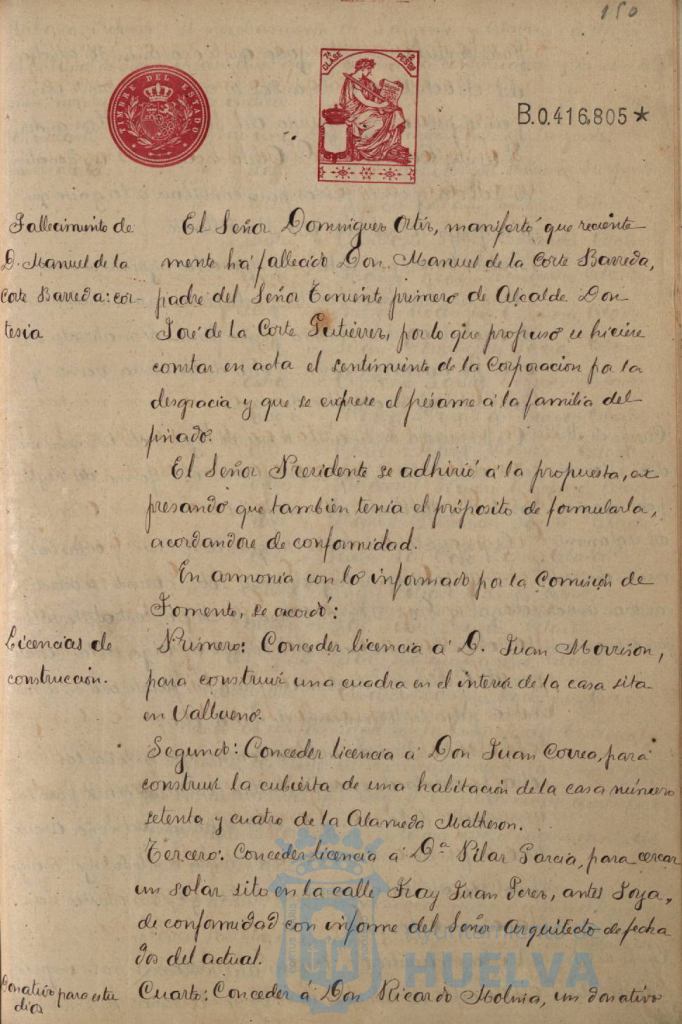 150
TIMBRE DEL ESTADO
7ª CLASE
PESETAS
B.0.416.805*
Fallecimiento de
D. Manuel de la
Corte Barreda: cor-
tesia
El Señor Dominguez Ortiz, manifestó que reciente
mente há fallecido Don Manuel de la Corte Barreda,
padre del Señor Teniente primero de Alcalde Don
José de la Corte Gutiérrez, por lo que propuso se hiciese
constar en acta el sentimiento de la Corporacion por la
desgracia y que se exprese el pésame á la familia del
finado.
El Señor Presidente se adhirió á la propuesta, ex
presando que tambien tenia el próposito de formularla,
acordandose de conformidad.
En armonia con lo informado por la Comisión de
Fomento, se acordó:
Licencias de
construcción.
Primero: Conceder licencia á D. Juan Morrison,
para construir una cuadra en el interior de la casa sita
en Valbueno.
Segundo: Conceder licencia á Don Juan Correa, para
construir la cubierta de una habitación de la casa número
setenta y cuatro de la Alameda Matheson.
Tercero: Conceder licencia á Dª Pilar Garcia, para cercar
un solar sito en la calle Fray Juan Perez, antes
de conformidad con informe del Señor Arquitecto de fecha
dos del actual.
Donativo para estu
dios
Cuarto: Conceder á Don Ricardo un donativo
HUELVA